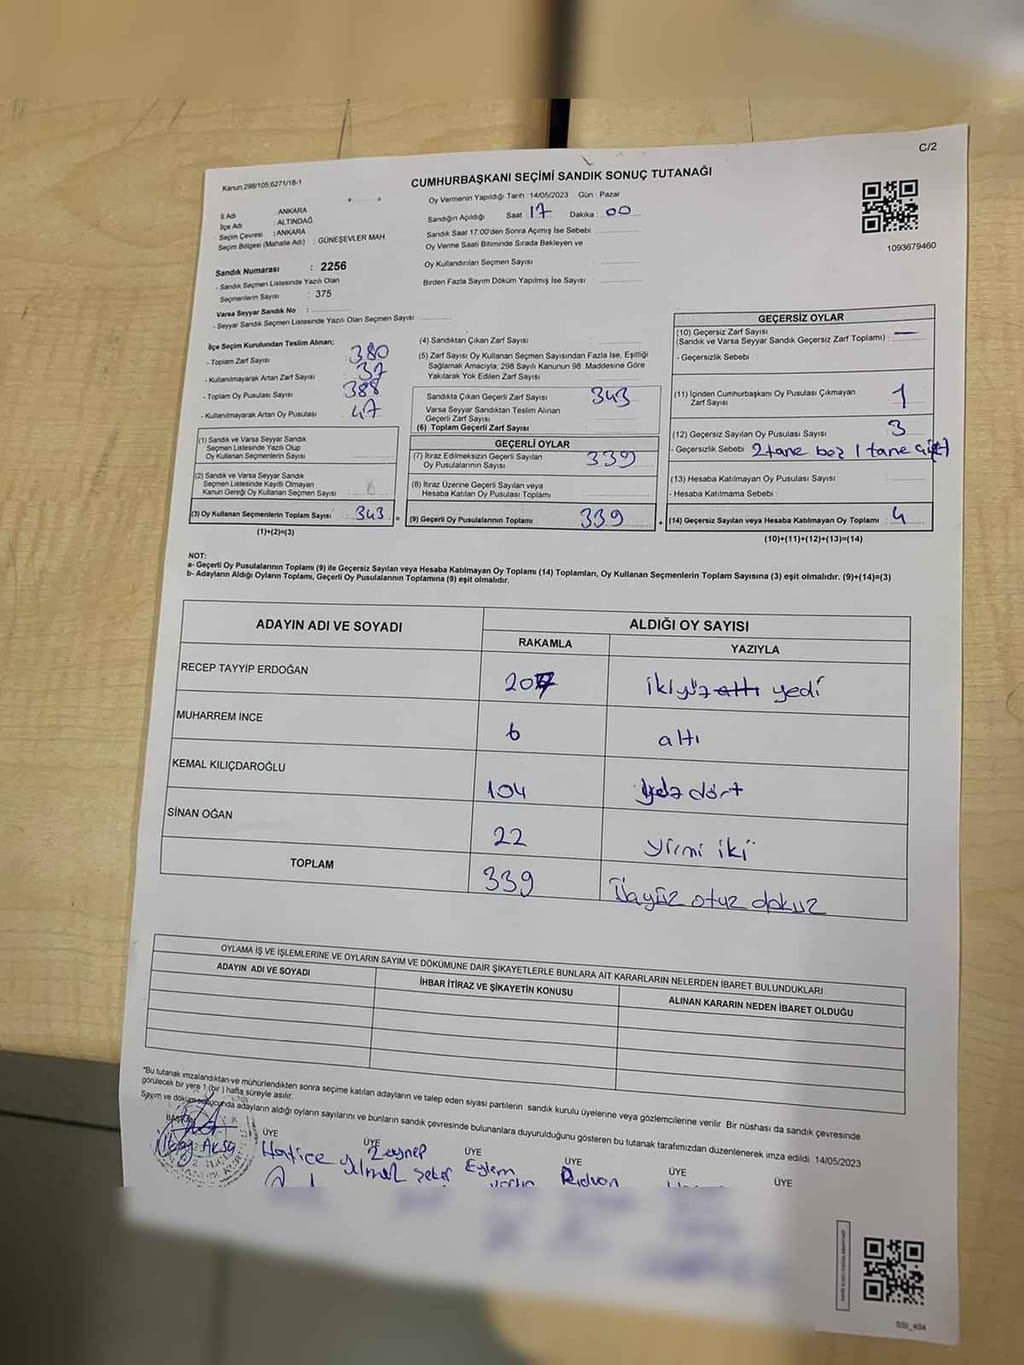 C/2
Kanun,298/105;6271/18-1
CUMHURBAŞKANI SEÇİMİ SANDIK SONUÇ TUTANAĞI
İl Adı : ANKARA
İlçe Adı : ALTINDAĞ
Seçim Çevresi : ANKARA
Seçim Bölgesi (Mahalle Adı) : GÜNEŞEVLER MAH
Oy Vermenin Yapıldığı Tarih :14/05/2023 Gün : Pazar
Sandığın Açıldığı Saat 17 Dakika : 00
Sandık Saat 17:00'den Sonra Açımış İse Sebebi
Oy Verme Saati Bitiminde Sırada Bekleyen ve
Oy Kullandırılan Seçmen Sayısı
Birden Fazla Sayım Döküm Yapılmış İse Sayısı
1093679460
Sandık Numarası : 2256
- Sandık Seçmen Listesinde Yazılı Olan
Seçmenlerin Sayısı : 375
Varsa Seyyar Sandık No :
- Seyyar Sandık Seçmen Listesinde Yazılı Olan Seçmen Sayısı:
İlçe Seçim Kurulundan Teslim Alınan;
- Toplam Zarf Sayısı 380
- Kullanılmayarak Artan Zarf Sayısı 37
- Toplam Oy Pusulası Sayısı 388
- Kullanılmayarak Artan Oy Pusulası 47
(1) Sandık ve Varsa Seyyar Sandık
Seçmen Listesinde Yazılı Olup
Oy Kullanan Seçmenlerin Sayısı
(2) Sandık ve Varsa Seyyar Sandık
Seçmen Listesinde Kayıtlı Olmayan
Kanun Gereği Oy Kullanan Seçmen Sayısı
(3) Oy Kullanan Seçmenlerin Toplam Sayısı 343
(1)+(2)=(3)
(4) Sandıktan Çıkan Zarf Sayısı
(5) Zarf Sayısı Oy Kullanan Seçmen Sayısından Fazla İse, Eşitliği
Sağlamak Amacıyla; 298 Sayılı Kanunun 98. Maddesine Göre
Yakılarak Yok Edilen Zarf Sayısı
Sandıkta Çıkan Geçerli Zarf Sayısı 343
Varsa Seyyar Sandıktan Teslim Alınan
Geçerli Zarf Sayısı
(6) Toplam Geçerli Zarf Sayısı
GEÇERLİ OYLAR
(7) İtiraz Edilmeksizin Geçerli Sayılan
Oy Pusulalarının Sayısı 339
(8) İtiraz Üzerine Geçerli Sayılan veya
Hesaba Katılan Oy Pusulası Toplamı
(9) Geçerli Oy Pusulalarının Toplamı 339
GEÇERSİZ OYLAR
(10) Geçersiz Zarf Sayısı
(Sandık ve Varsa Seyyar Sandık Geçersiz Zarf Toplamı) : —
- Geçersizlik Sebebi :
(11) İçinden Cumhurbaşkanı Oy Pusulası Çıkmayan
Zarf Sayısı 1
(12) Geçersiz Sayılan Oy Pusulası Sayısı 3
- Geçersizlik Sebebi 2 tane boz 1 tane çift
(13) Hesaba Katılmayan Oy Pusulası Sayısı
- Hesaba Katılmama Sebebi :
(14) Geçersiz Sayılan veya Hesaba Katılmayan Oy Toplamı : 4
(10)+(11)+(12)+(13)=(14)
NOT:
a- Geçerli Oy Pusulalarının Toplamı (9) ile Geçersiz Sayılan veya Hesaba Katılmayan Oy Toplamı (14) Toplamları, Oy Kullanan Seçmenlerin Toplam Sayısına (3) eşit olmalıdır. (9)+(14)=(3)
b- Adayların Aldığı Oyların Toplamı, Geçerli Oy Pusulalarının Toplamına (9) eşit olmalıdır.
ADAYIN ADI VE SOYADI
ALDIĞI OY SAYISI
RAKAMLA YAZIYLA
RECEP TAYYİP ERDOĞAN 207 ikiyüz altı yedi
MUHARREM İNCE 6 altı
KEMAL KILIÇDAROĞLU 104 yüz dört
SİNAN OĞAN 22 yirmi iki
TOPLAM 339 üçyüz otuz dokuz
OYLAMA İŞ VE İŞLEMLERİNE VE OYLARIN SAYIM VE DÖKÜMÜNE DAİR ŞİKAYETLERLE BUNLARA AİT KARARLARIN NELERDEN İBARET BULUNDUKLARI
ADAYIN ADI VE SOYADI İHBAR İTİRAZ VE ŞİKAYETİN KONUSU ALINAN KARARIN NEDEN İBARET OLDUĞU
*Bu tutanak imzalandıktan ve mühürlendikten sonra seçime katılan adayların ve talep eden siyasi partilerin sandık kurulu üyelerine veya gözlemcilerine verilir. Bir nüshası da sandık çevresinde
görülecek bir yere 1 (bir ) hafta süreyle asılır.
Sayım ve döküm sonucunda adayların aldığı oyların sayılarını ve bunların sandık çevresinde bulunanlara duyurulduğunu gösteren bu tutanak tarafımızdan düzenlenerek imza edildi. 14/05/2023
ÜYE ÜYE ÜYE ÜYE ÜYE ÜYE
Hatice Zeynep Eylem Rıdvan
SSI_404